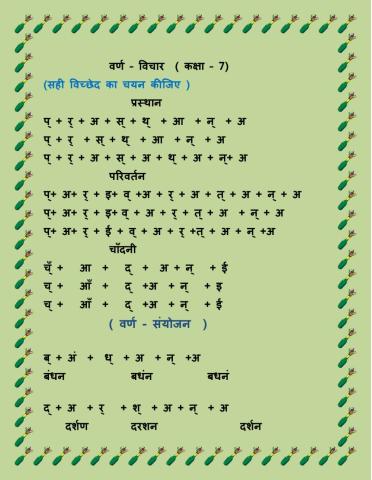 वर्ण – विचार ( कक्षा – 7)
(सही विच्छेद का चयन कीजिए )
प्रस्थान
प् + र् + अ + स् + थ् + आ + न् + अ
प् + र् + स् + थ् + आ + न् + अ
प् + र् + अ + स् + अ + थ् + अ + न्+ अ
परिवर्तन
प्+ अ+ र् + इ+ व् +अ + र् + अ + त् + अ + न् + अ
प्+ अ+ र् + इ+ व् + अ + र् + त् + अ + न् + अ
प्+ अ+ र् + ई + व् + अ + र् +त् + अ + न् +अ
चाँदनी
चँ् + आ + द् + अ + न् + ई
च् + आँ + द् +अ + न् + इ
च् + आँ + द् +अ + न् + ई
( वर्ण – संयोजन )
ब् + अं + ध् + अ + न् +अ
बंधन बधंन बधनं
द् + अ + र् + श् + अ + न् + अ
दर्शण दरशन दर्शन